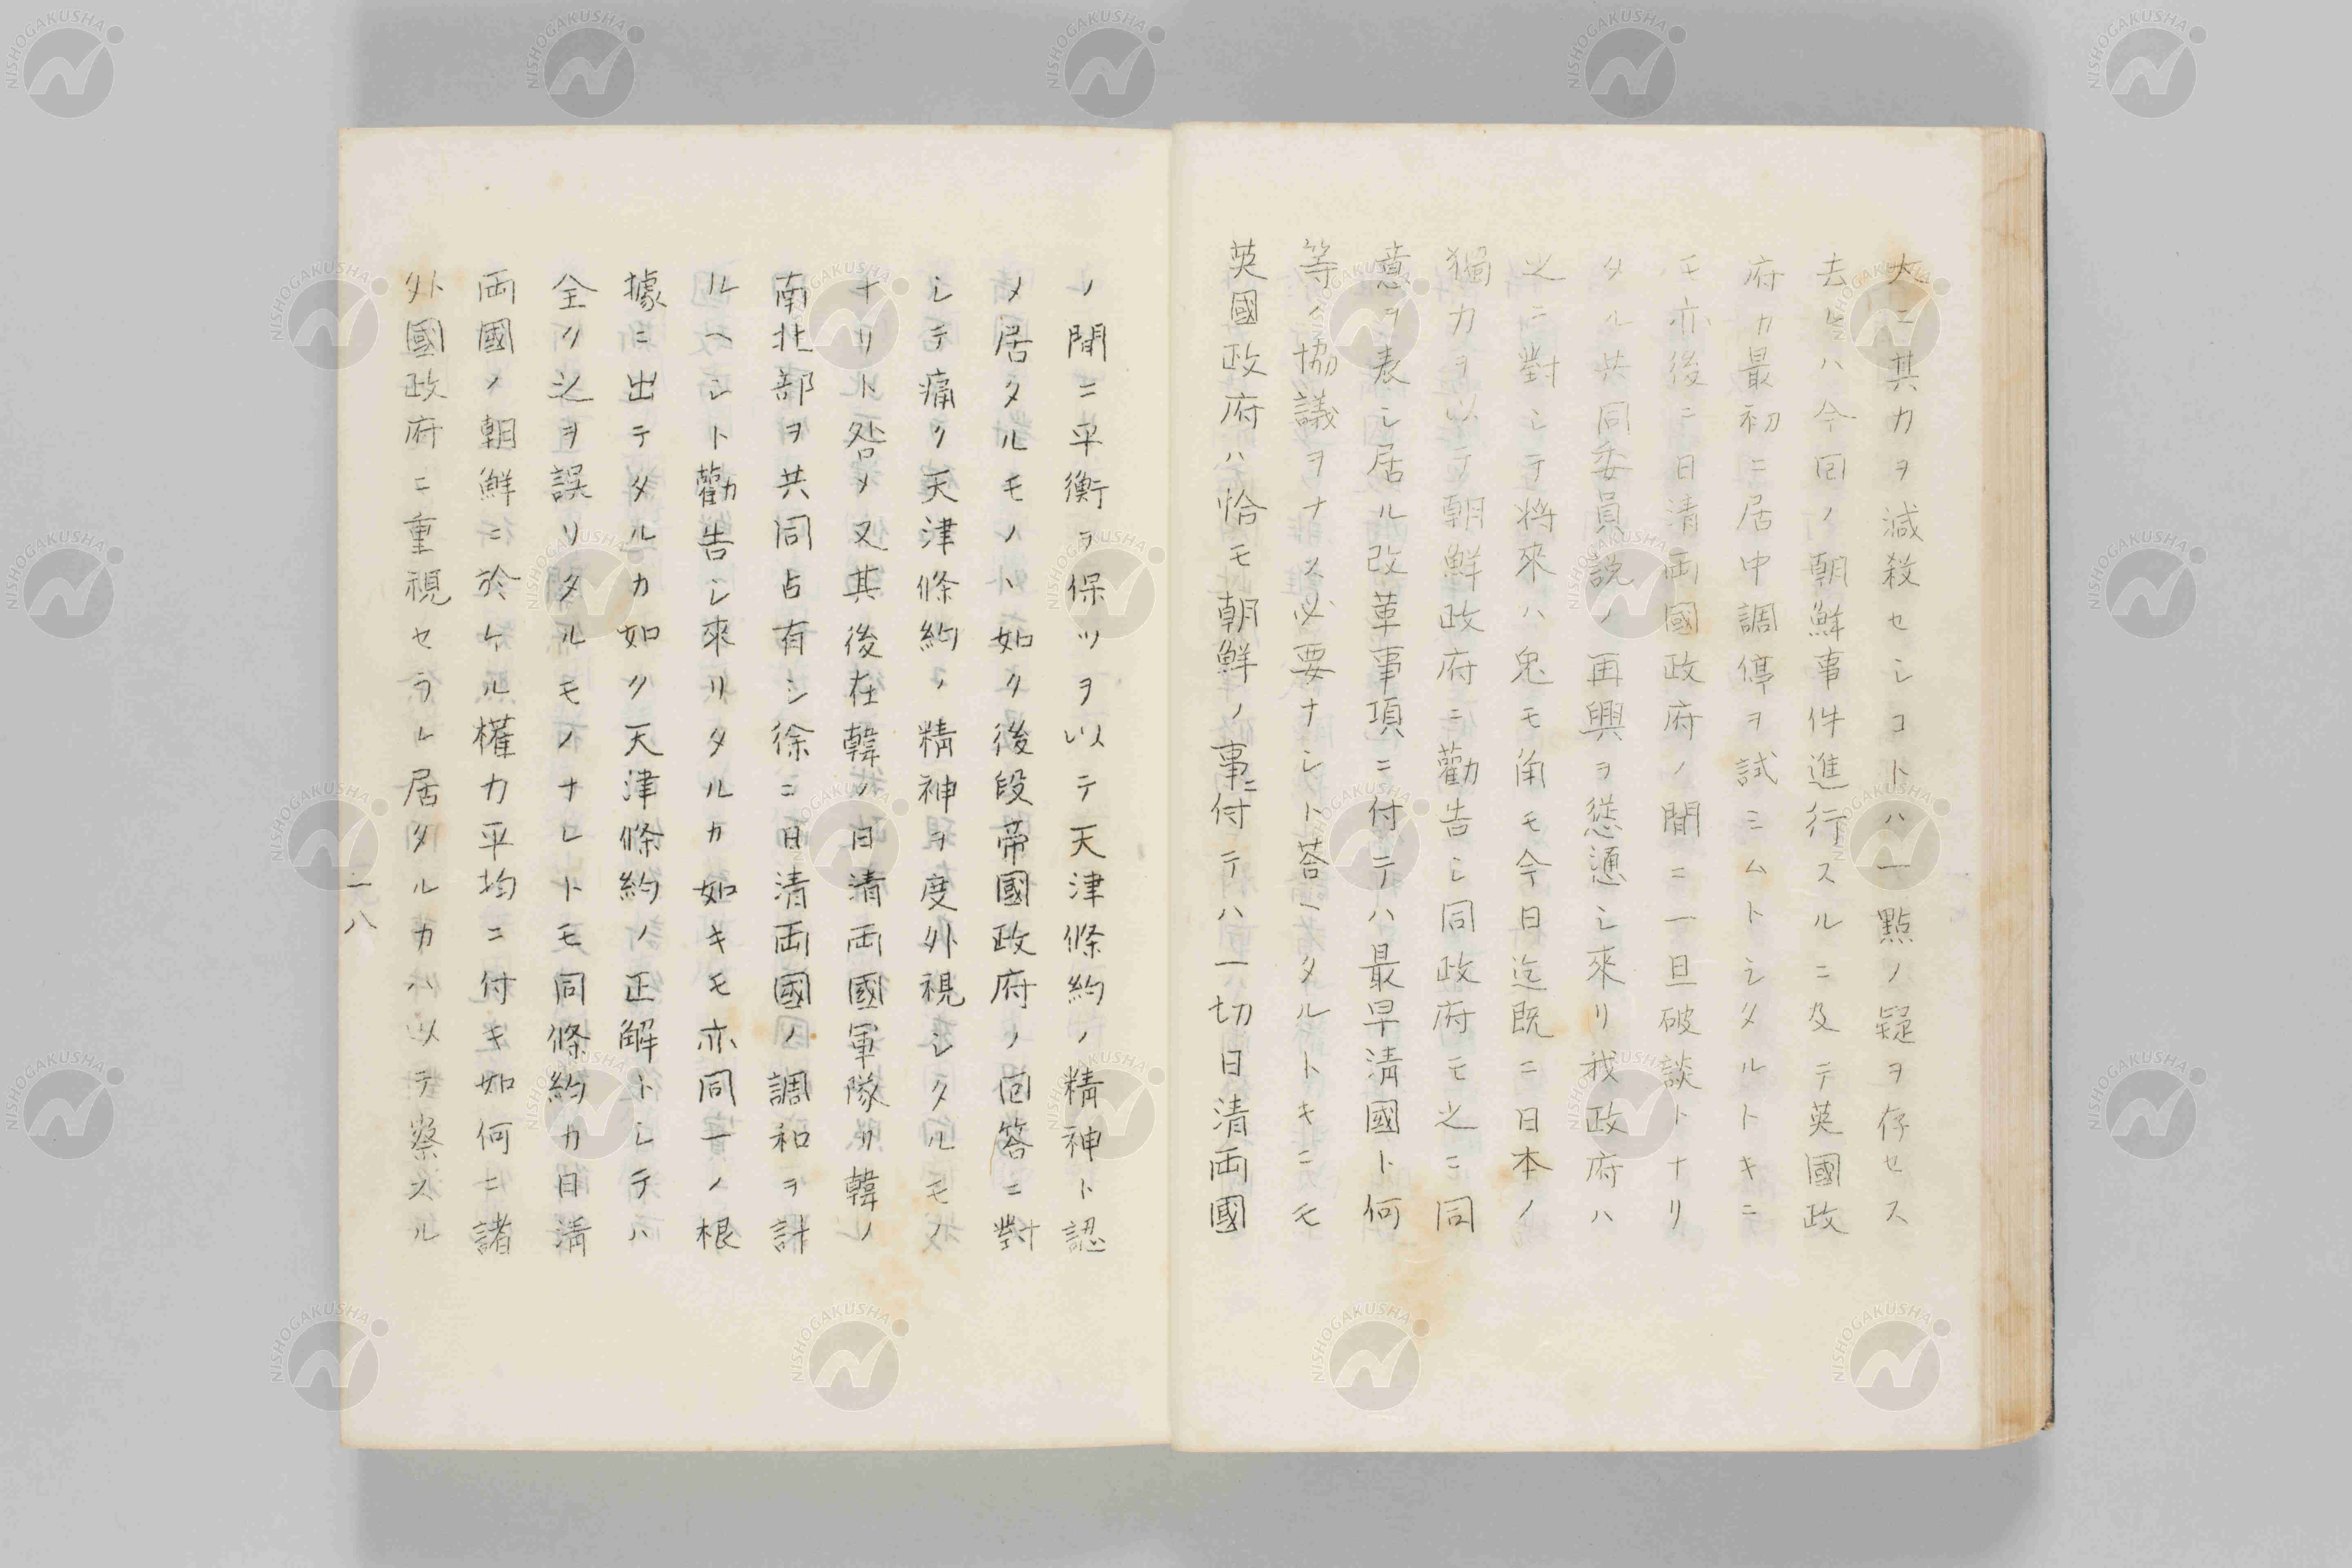 大ニ其力ヲ減殺セシコトハ一點ノ疑ヲ存セス
去レハ今回ノ朝鮮事件進行スルニ及テ英國政
府カ最初ニ居中調停ヲ試ミムトシタルトキニ
モ亦後ニ日清両國政府ノ間ニ一旦破談トナリ
タル共同委員説ノ再興ヲ慫慂シ來リ我政府ハ
之ニ對シテ将來ハ兎モ角モ今日迄既ニ日本ノ
獨力ヲ以テ朝鮮政府ニ勸告シ同政府モ之ニ同
意ヲ表シ居ル改革事項ニ付テハ最早清國ト何
等ノ協議ヲナス必要ナシト荅ヘタルトキニモ
英國政府ハ恰モ朝鮮ノ事ニ付テハ一切日清両國
ノ間ニ平衡ヲ保ツヲ以テ天津條約ノ精神ト認
メ居タルモノヽ如ク後段帝國政府ノ回答ニ對
シテ痛ク天津條約ノ精神ヲ度外視シタルモノ
ナリト咎メ又其後在韓ノ日清両國軍隊リ韓ノ
南北部ヲ共同占有シ徐ニ日清両國ノ調和ヲ計
ルヘシト勸告シ來リタルカ如キモ亦同一ノ根
據ニ出テタルカ如ク天津條約ノ正解トシテハ
全ク之ヲ誤リタルモノナレトモ同條約カ日清
両國ノ朝鮮ニ於ケル權力平均ニ付キ如何ニ諸
外國政府ニ重視セラレ居タルカハ以テ察スル
二八
NISHOGAKUSHA